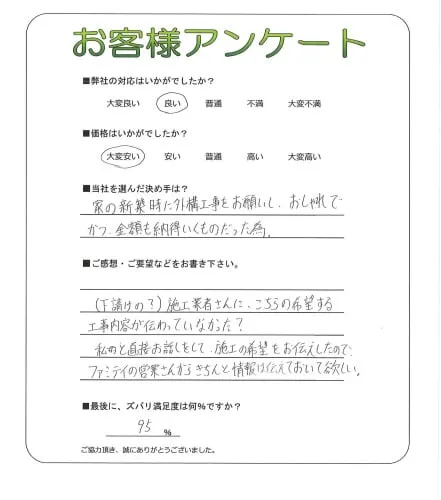 お客様アンケート
■弊社の対応はいかがでしたか?
大変良い 良い 普通 不満 大変不満
■価格はいかがでしたか?
大変安い 安い 普通 高い 大変高い
■当社を選んだ決め手は?
家の新築時に外構工事をお願いし、おしゃれで
かつ、金額も納得いくものだった為。
■ご感想・ご要望などをお書き下さい。
(下請けの?)施工業者さんに、こちらの希望する
工事内容が伝わっていなかった?
私めと直接お話しをして、施工の希望をお伝えしたので、
ファミテイの営業さんからきちんと情報は伝えておいて欲しい。
■最後に、ズバリ満足度は何%ですか?
95 %
ご協力頂き、誠にありがとうございました。